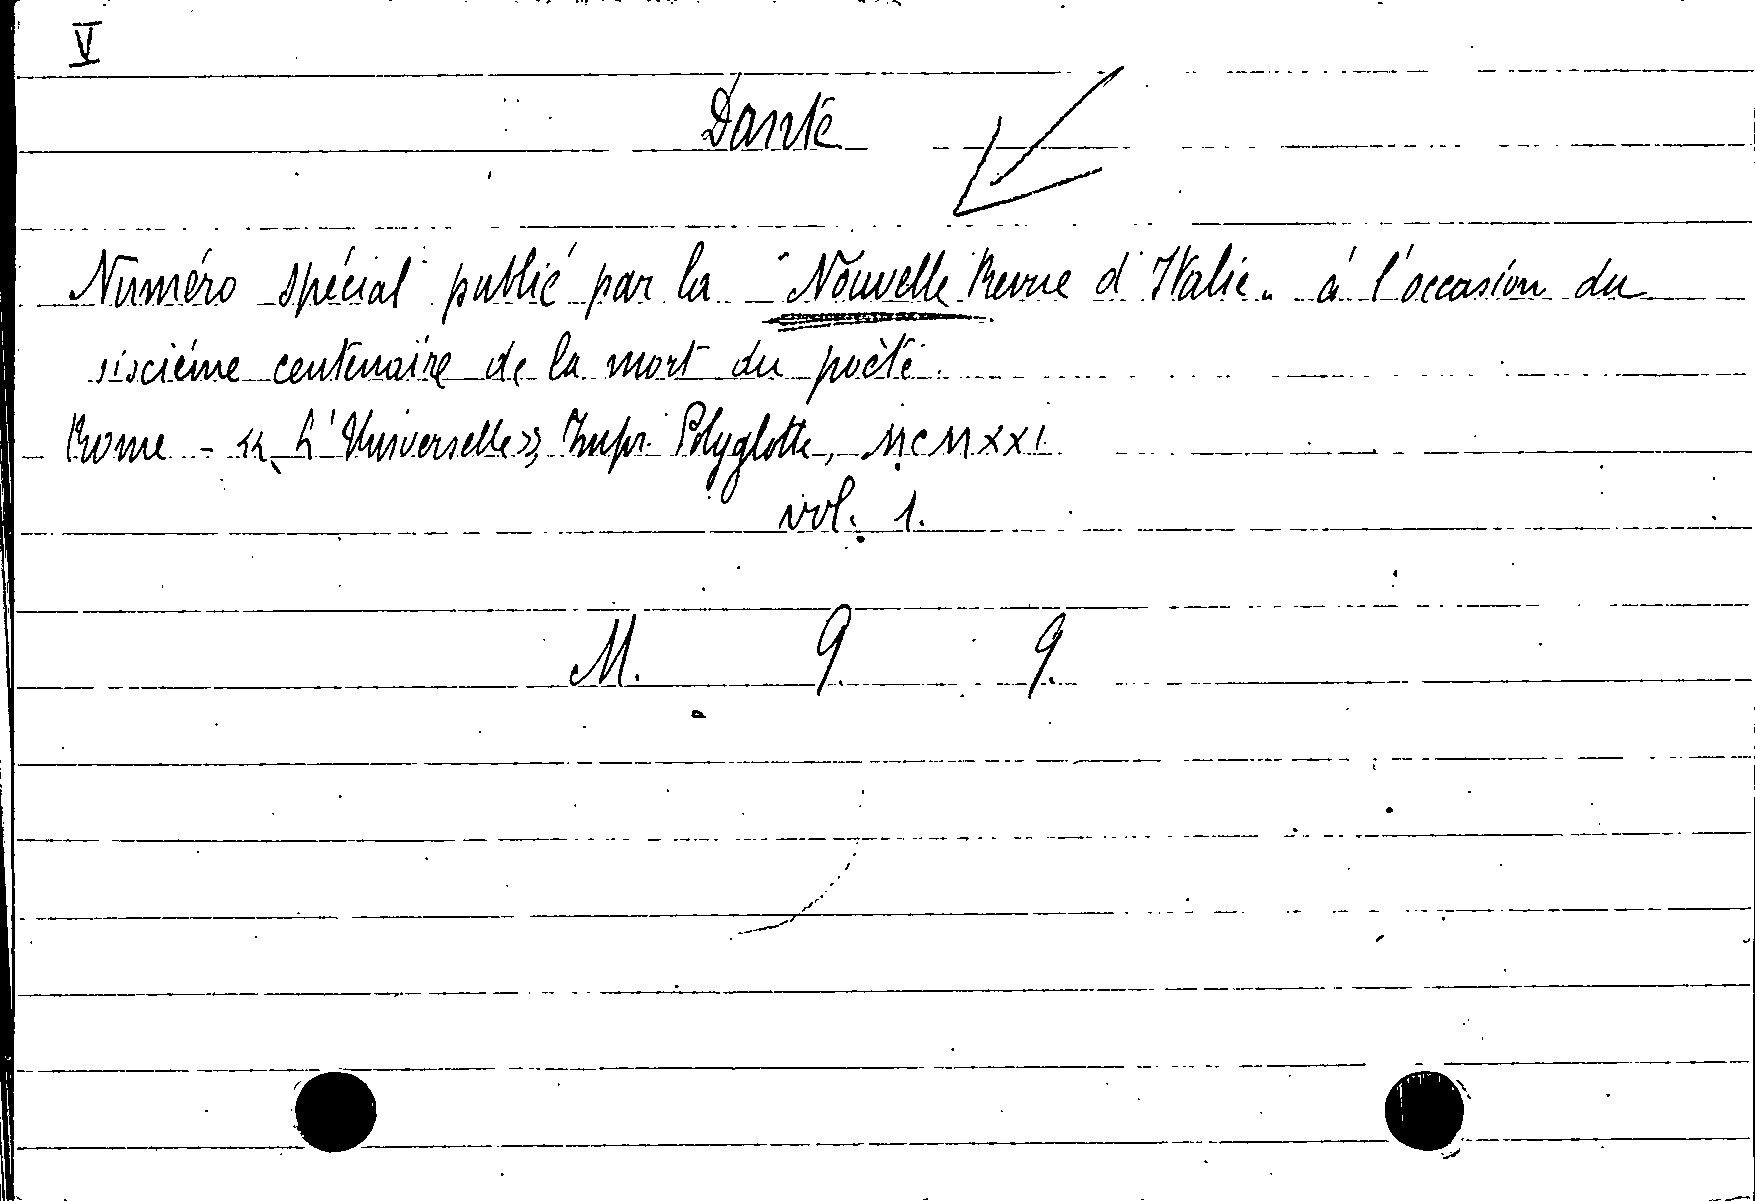 V
Dante
Numéro spécial publié par la "Nouvelle Revue d'Italie" à l'occasion du
sixcième centenaire de la mort du poète.
Rome - « L'Universelle », Impr. Polyglotte, MCMXXI.
vol. 1.
M. 9. 9.